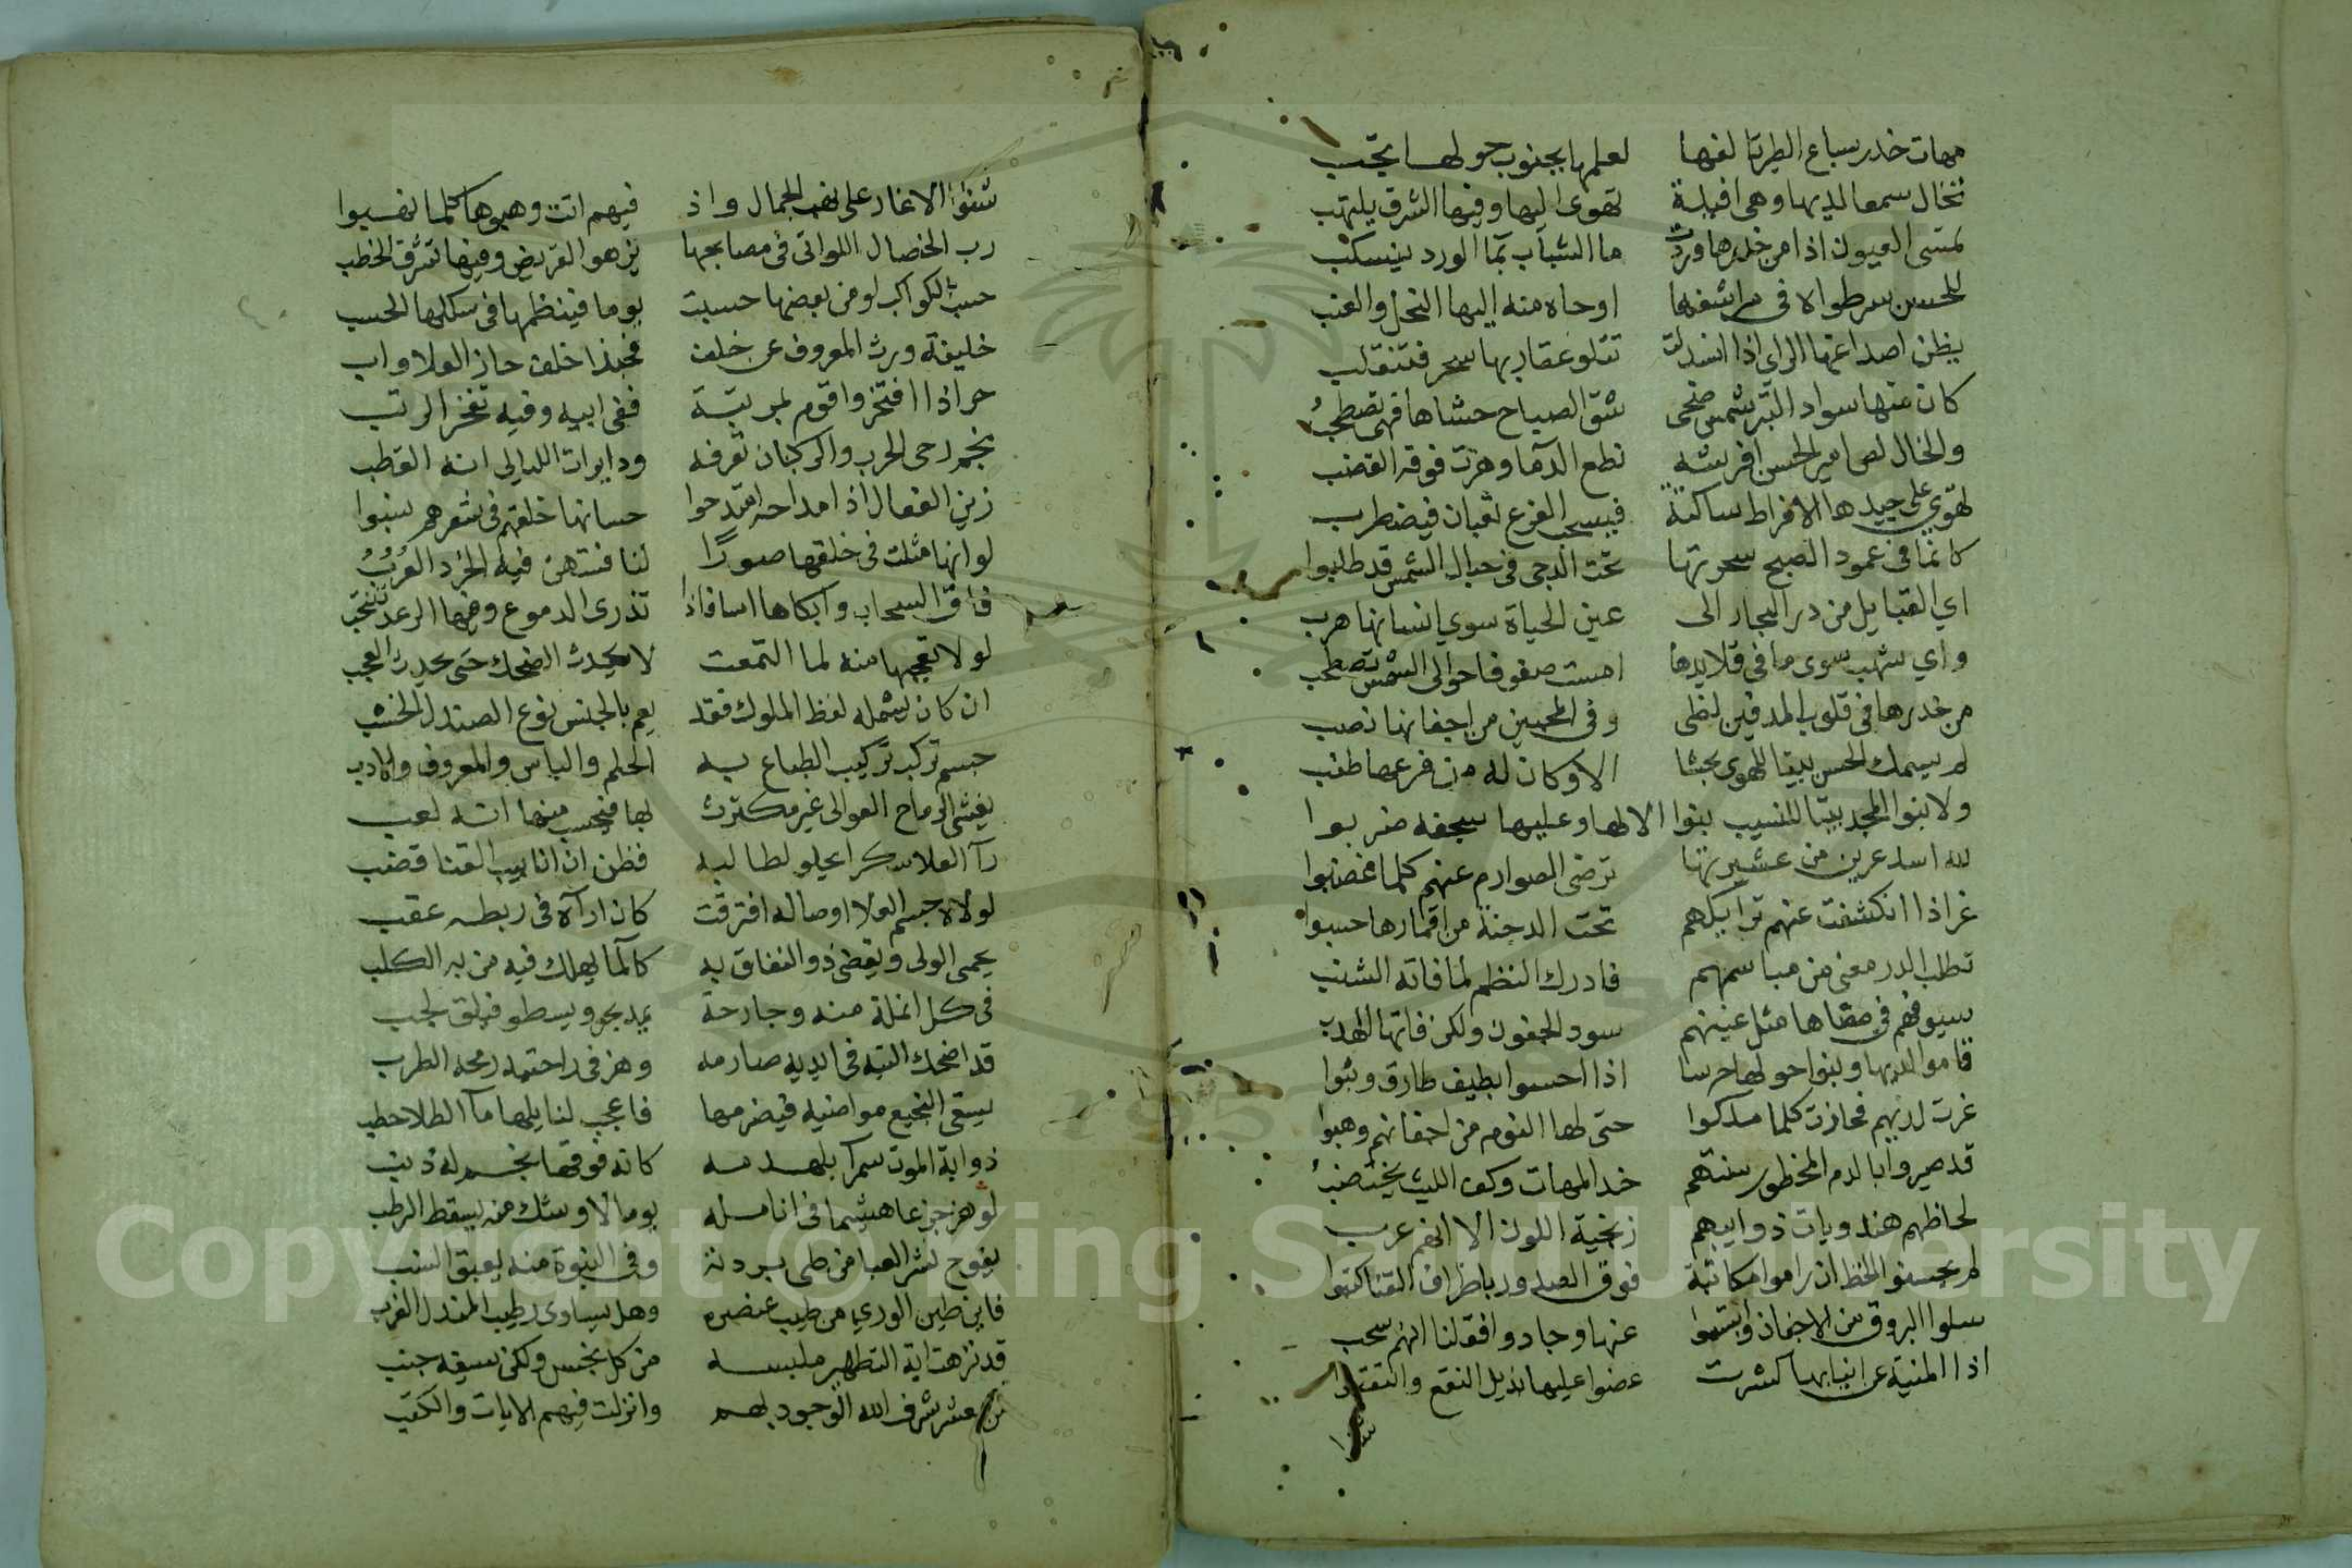 مهات خدر سباع الطير تالفها لعلمها بجنوب حولها يجب
تخال سمعا لديها وهى افيلة تهوى اليها وفيها الشرق يلتهب
تمسى العيون اذا من خدرها وردت ما الشباب بما الورد ينسكب
للحسن سر طواه فى مراشفها اوحاه منه اليها النحل والعنب
يظن اصداغها الراى اذا انسدلت تتلو عقاربها سحر فتنقلب
كان منها سواد التبر شمس ضحى شق الصباح حشاها فهى تصطحب
والخال لص امير الحسن افرشه نطع الدما وهزت فوقه القضب
تهوي على جيدها الاقراط ساكنة فيسحب الفرع ثعبان فيضطرب
كانما فى عمود الصبح سحرتها تحت الدجى فى حبال الشمس قد طلبوا
اي القبايل من در البحار الى عين الحياة سوي انسانها هرب
واي شهب سوى ما فى قلايدها امست صفوفا حوالى الشمس تصطحب
من خدرها فى قلوب المدنفين لظى وفى المحبين من اجفانها نصب
لم يسمك الحسن بيتا للهوى بحشا الا وكان له من فرعها طنب
ولا بنوا المجد بيتا للنسيب بنوا الا لها وعليها سجفه ضربوا
لله اسد عرين من عشيرتها ترضى الصوارم عنهم كلما غضبوا
غر اذا انكشفت عنهم ترايكهم تحت الدجنة من اقمارها حسبوا
تطلب الدر معنى من مباسمهم فادرك النظم لما فاته الشنب
سيوفهم فى مضاها مثل عينهم سود الجفون ولكن فاتها الهدب
قاموا لديها وبنوا حولها حرسا اذا احسوا بطيف طارق وثبوا
غرت لديهم فحازت كلما ملكوا حتى لها النوم من اجفانهم وهبوا
قد صيروا بالدم المخطور سنتهم خد المهات وكف الليث يختضب
لحاظهم هندويات ذوايبهم زنجية اللون الا انهم عرب
لم يحسنوا الخط ان راموا مكاتبة فوق الصدور باطراف القنا كتبوا
سلوا البروق من الاجفان وابتسموا عنها وجادوا فقلنا انهم سحب
اذا المنية عن انيابها كشرت عضوا عليها بذيل النقع والتقبوا
شنوا
شنوا الاغار على نهب الجمال واذ فيهم اتت وهبوها كلما نهبوا
رب الخصال اللواتى فى مصابحها يزهو القريض وفيها تشرق الخطب
حسب الكواكب لو من بعضها حسبت يوما فينظمها فى سلكها الحسب
خليفة ورث المعروف عن خلف فحبذا خلف حاز العلا واب
حر اذا افتخروا قوم لمرتبة ففى ابيه وفيه تفخر الرتب
نجم رحى الحرب والركبان تعرفه ودايرات الليالى انه القطب
زين الفعال اذا مداحه امتدحوا حسانها خلقهم فى شعرهم نسبوا
لو انها مثلت فى خلقها صورا لنا فتنتهن فيه الخرد العرب
فاق السحاب وابكاها اسا فاذا تذرى الدموع وفيها الرعد ينتحب
لولا تعجبها منه لما التمعت لا يحدث الضحك حتى يحدث العجب
ان كان يشمله لفظ الملوك فقد يعم بالجنس نوع الصندل الخشب
جسم تركب تركيب الطباع به الحلم والباس والمعروف والادب
يغشى الرماح العوالى غير مكترث بها فيحسب منها انه لعب
رآ العلا سكرا يحلو لطالبه فظن ان انابيب القنا قضب
لولاه جسم العلا اوصاله افترقت كان ارآه فى ربطه عقب
يحمى الولى ويقضى ذو النفاق به كالما يهلك فيه من به الكلب
فى كل انملة منه وجارحة يم يجرى ويسطو فيلق لجب
قد اضحك التيه فى ايديه صارمه وهز فى راحتيه رمحه الطرب
يسقى النجيع مواضيه فيضرمها فاعجب لنار لها مآ الطلا حطب
ذوابة الموت سمرآ بلهدمه كانه فوقها نجم له ذنب
لو هز جزعا هشيما فى انامله يوما لاوشك منه يسقط الرطب
يفوح نشر العبا من طى بردته وفى النبوة منه يعبق النسب
فاين طين الوري من طيب عنصره وهل يساوى رطيب المندل الغرب
قد نزهت اية التطهير ملبسه من كل نجس ولكن سيفه جنب
من عشر شرف الله الوجود بهم وانزلت فيهم الايات والكتب
Copyright © King Saud University